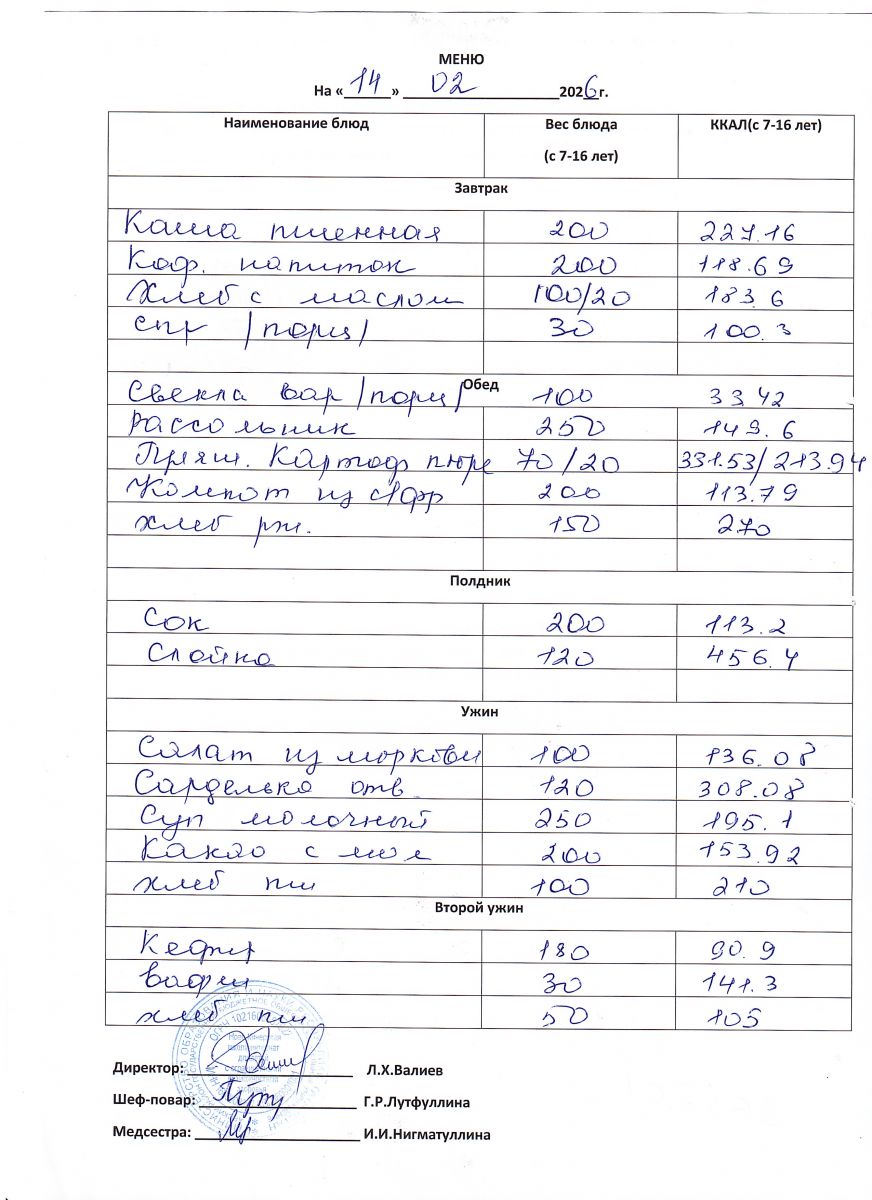 МЕНЮ
На «14» 02 2026г.
Наименование блюд Вес блюда (с 7-16 лет) ККАЛ(с 7-16 лет)
Завтрак
Каша пшенная 200 227.16
Коф. напиток 200 118.69
Хлеб с маслом 100/20 183.6
сыр /порц/ 30 100.3
Обед
Свекла вар /порц/ 100 33 42
Рассольник 250 149.6
Картоф пюре 70/20 331.53/213.94
Компот из с/фр 200 113.79
хлеб рж. 150 270
Полдник
Сок 200 113.2
Слойка 120 456.4
Ужин
Салат из моркови 100 136.08
Сарделька отв 120 308.08
Суп молочный 250 195.1
Какао с мол 200 153.92
хлеб пш 100 210
Второй ужин
Кефир 180 90.9
вафли 30 141.3
хлеб пш 50 105
Директор: Л.Х.Валиев
Шеф-повар: Г.Р.Лутфуллина
Медсестра: И.И.Нигматуллина